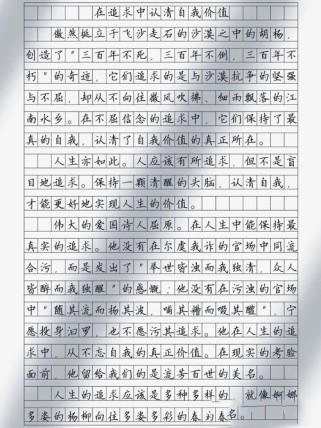 在追求中认清自我价值
傲然挺立于飞沙走石的沙漠之中的胡杨,
创造了"三百年不死,三百年不倒,三百年不
朽"的奇迹,它们追求的是与沙漠抗争的坚强
与不屈,却从不向往微风吹拂、细雨飘落的江
南水乡。在不屈信念的追求中,它们保持了最
真的自我,认清了自我价值的真正所在。
人生亦如此。人应该有所追求,但不是盲
目地追求。保持一颗清醒的头脑,认清自我,
才能更好地实现人生的价值。
伟大的爱国诗人屈原。在人生中能保持最
真实的追求。他没有在尔虞我诈的官场中同流
合污,而是发出了"举世皆浊而我独清,众人
皆醉而我独醒"的感慨;他没有在污浊的官场
中"随其流而扬其波,哺其糟而啜其醨",宁
愿投身汨罗,也不愿污其追求。他在人生的追
求中,从不忘自我的真正价值。在现实的考验
面前,他留给我们的是流芳百世的美名。
人生的追求应该是多种多样的,就像婀娜
多姿的杨柳向往多姿多彩的春